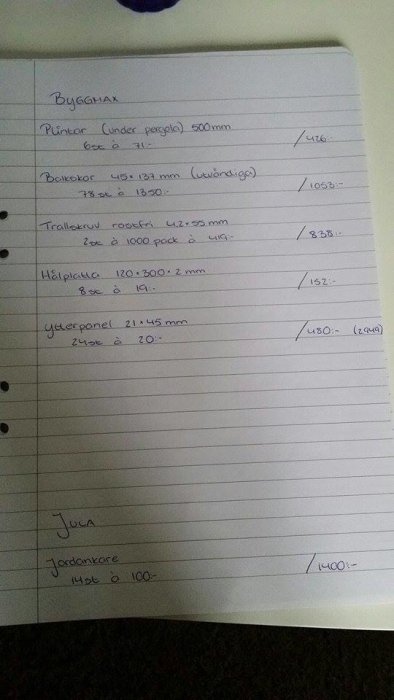 BYGGMAX
Plintar (under pergola) 500mm
6st à 71:- /426:-
Balkskor 45*137mm (utvändiga)
78st à 1350:- /1053:-
Trallskruv rostfri 4.2*55mm
2st à 1000 pack à 419:- /838:-
Hålplatta 120*300*2mm
8st à 19:- /152:-
Ytterpanel 21*45mm
24st à 20:- /480:- (2949)
JULA
Jordankare
14st à 100:- /1400:-